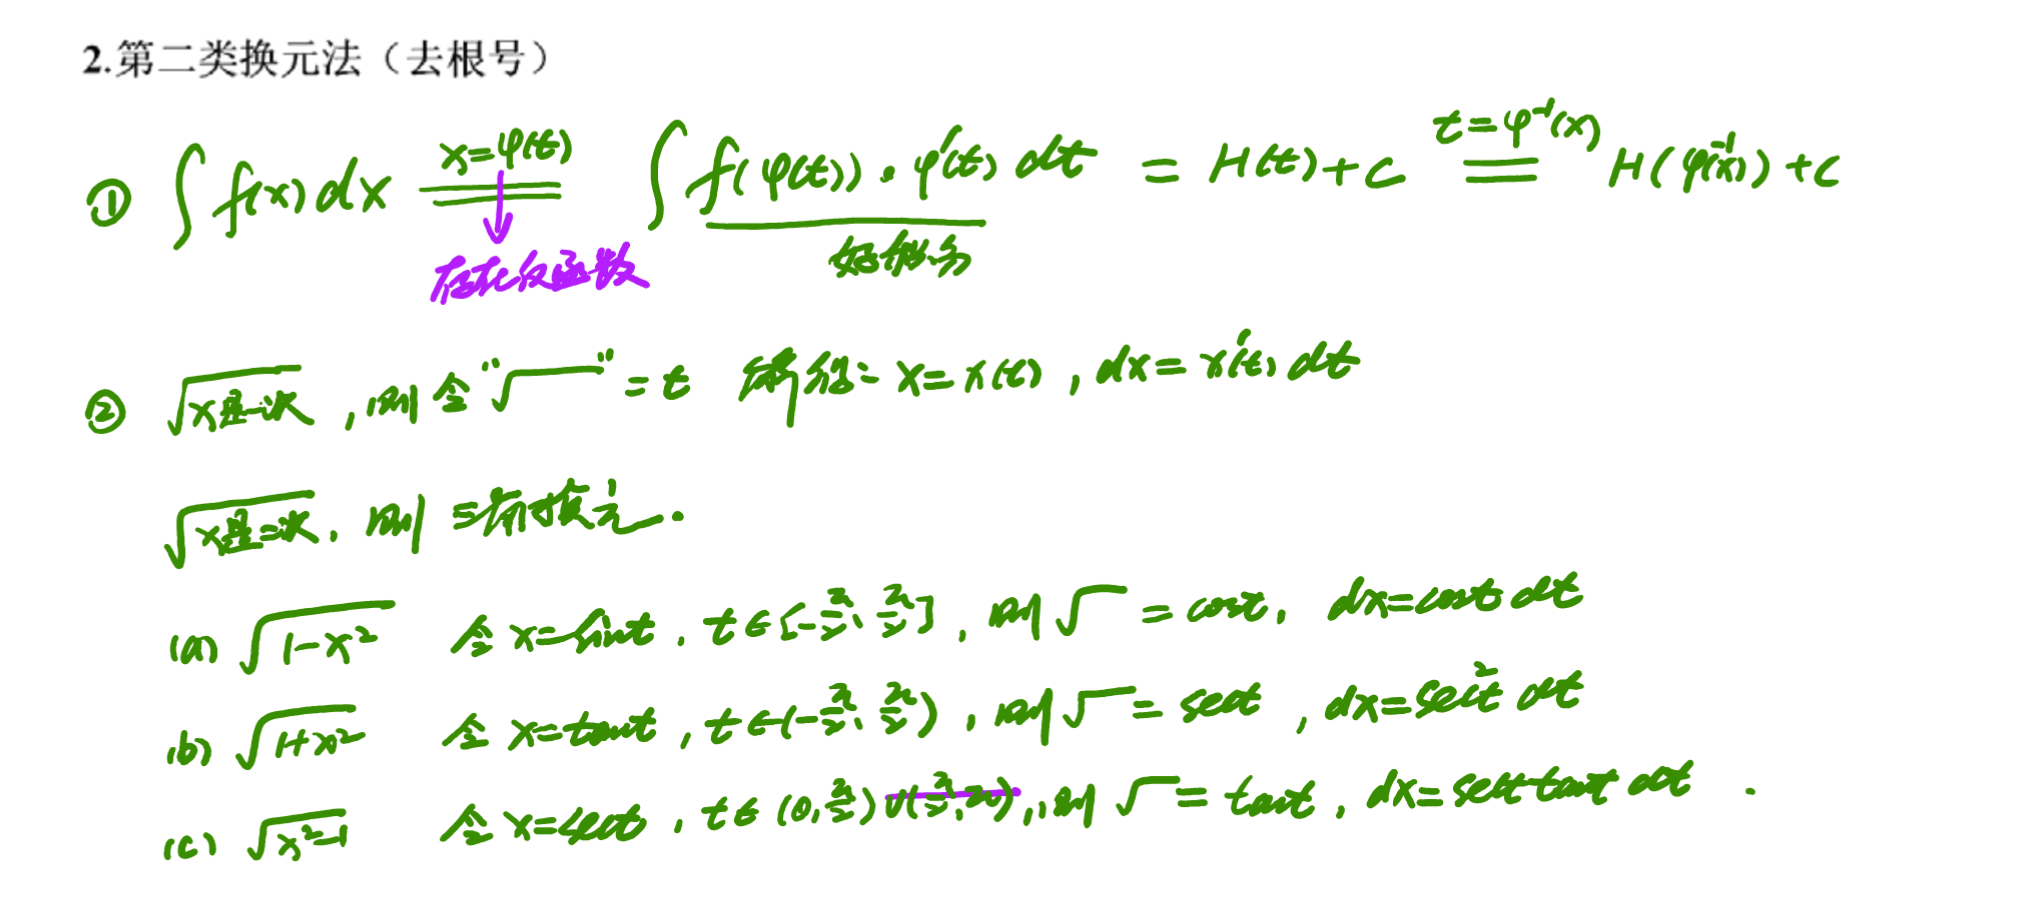 2.第二类换元法（去根号）
① ∫f(x)dx \xlongequal{x=φ(t)} ∫f(φ(t))·φ'(t)dt = H(t)+C \xlongequal{t=φ⁻¹(x)} H(φ⁻¹(x))+C
存在反函数 好积分
② √(x是一次) ，则令"√‾"=t 解得：x=x(t)，dx=x'(t)dt
√(x是二次) ，则三角换元.
(a) √(1-x²) 令x=sint，t∈[-π/2、π/2]，则√‾=cost，dx=cost dt
(b) √(1+x²) 令x=tant，t∈(-π/2、π/2)，则√‾=sect，dx=sec²t dt
(c) √(x²-1) 令x=sect，t∈(0,π/2)∪(π/2,π)，则√‾=tant，dx=sect tant dt.